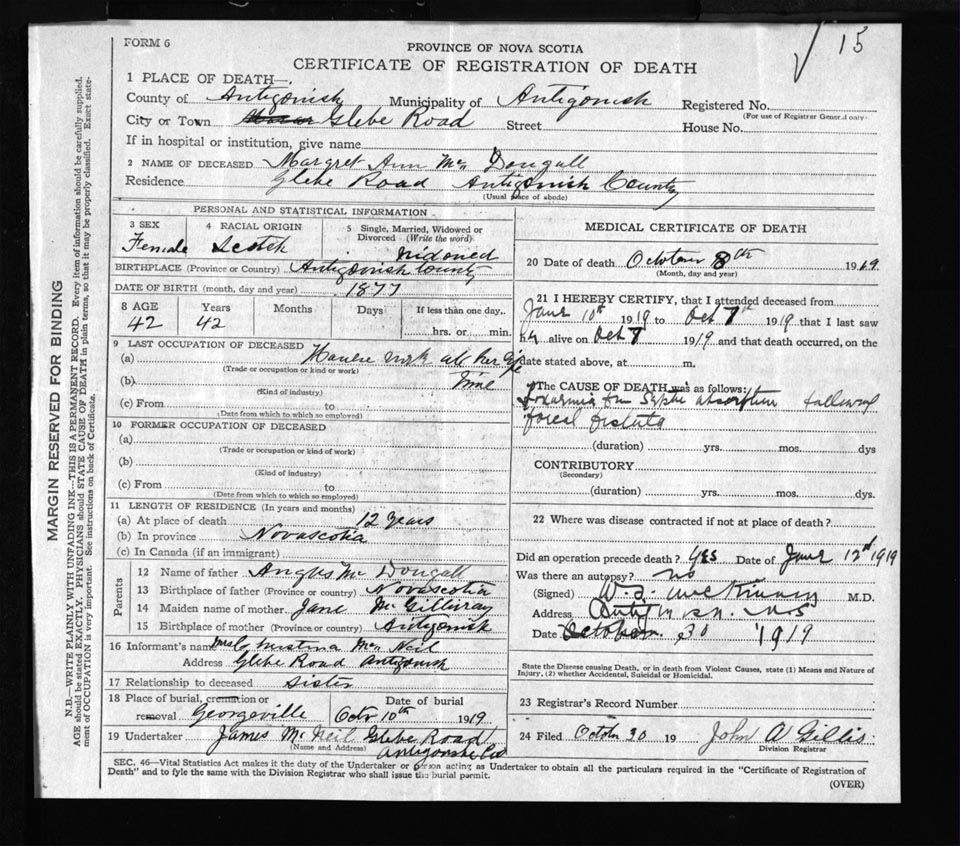 15
FORM 6
PROVINCE OF NOVA SCOTIA
CERTIFICATE OF REGISTRATION OF DEATH
1 PLACE OF DEATH—
County of Antigonish Municipality of Antigonish Registered No.
(For use of Registrar General only)
City or Town Glebe Road Street House No.
If in hospital or institution, give name
2 NAME OF DECEASED Margret Ann Mc Dougall
Residence Glebe Road Antigonish County
(Usual place of abode)
MARGIN RESERVED FOR BINDING
N.B.—WRITE PLAINLY WITH UNFADING INK—THIS IS A PERMANENT RECORD. Every item of information should be carefully supplied.
AGE should be stated EXACTLY. PHYSICIANS should STATE CAUSE OF DEATH in plain terms, so that it may be properly classified. Exact state-
ment of OCCUPATION is very important. See instructions on back of Certificate.
PERSONAL AND STATISTICAL INFORMATION
3 SEX 4 RACIAL ORIGIN 5 Single, Married, Widowed or
Divorced (Write the word)
Female Scotch Widowed
BIRTHPLACE (Province or Country) Antigonish County
DATE OF BIRTH (month, day and year) 1877
8 AGE Years Months Days If less than one day,
42 42 hrs. or min.
9 LAST OCCUPATION OF DECEASED
(a) House work all her life
(Trade or occupation or kind or work)
time
(b)
(Kind of industry)
(c) From to
(Date from which to which so employed)
10 FORMER OCCUPATION OF DECEASED
(a)
(Trade or occupation or kind of work)
(b)
(Kind of industry)
(c) From to
(Date from which to which so employed)
11 LENGTH OF RESIDENCE (In years and months)
(a) At place of death 12 years
(b) In province Novascotia
(c) In Canada (if an immigrant)
Parents
12 Name of father Angus Mc Dougall
13 Birthplace of father (Province or country) Novascotia
14 Maiden name of mother Jane McGillivray
15 Birthplace of mother (Province or country) Antigonish
16 Informant's name Mrs Mc Neil
Address Glebe Road Antigonish
17 Relationship to deceased Sister
18 Place of burial, cremation or Date of burial
removal Georgeville Octr 10th 1919
19 Undertaker James McNeil Glebe Road
(Name and Address) Antigonish Co
MEDICAL CERTIFICATE OF DEATH
20 Date of death October 8th 1919
(Month, day and year)
21 I HEREBY CERTIFY, that I attended deceased from
June 10th 1919 to Oct 7th 1919 that I last saw
alive on Oct 7 1919 and that death occurred, on the
date stated above, at m.
The CAUSE OF DEATH was as follows:
absorption
(duration) yrs. mos. dys
CONTRIBUTORY
(Secondary)
(duration) yrs. mos. dys.
22 Where was disease contracted if not at place of death?
Did an operation precede death? Yes Date of June 12th 1919
Was there an autopsy? no
(Signed) M.D.
Address Antigonish N.S
Date October 30 1919
State the Disease causing Death, or in death from Violent Causes, state (1) Means and Nature of
Injury, (2) whether Accidental, Suicidal or Homicidal.
23 Registrar's Record Number
24 Filed October 30 19 John A Gillis
Division Registrar
SEC. 46—Vital Statistics Act makes it the duty of the Undertaker or person acting as Undertaker to obtain all the particulars required in the "Certificate of Registration of
Death" and to fyle the same with the Division Registrar who shall issue the burial permit.
(OVER)